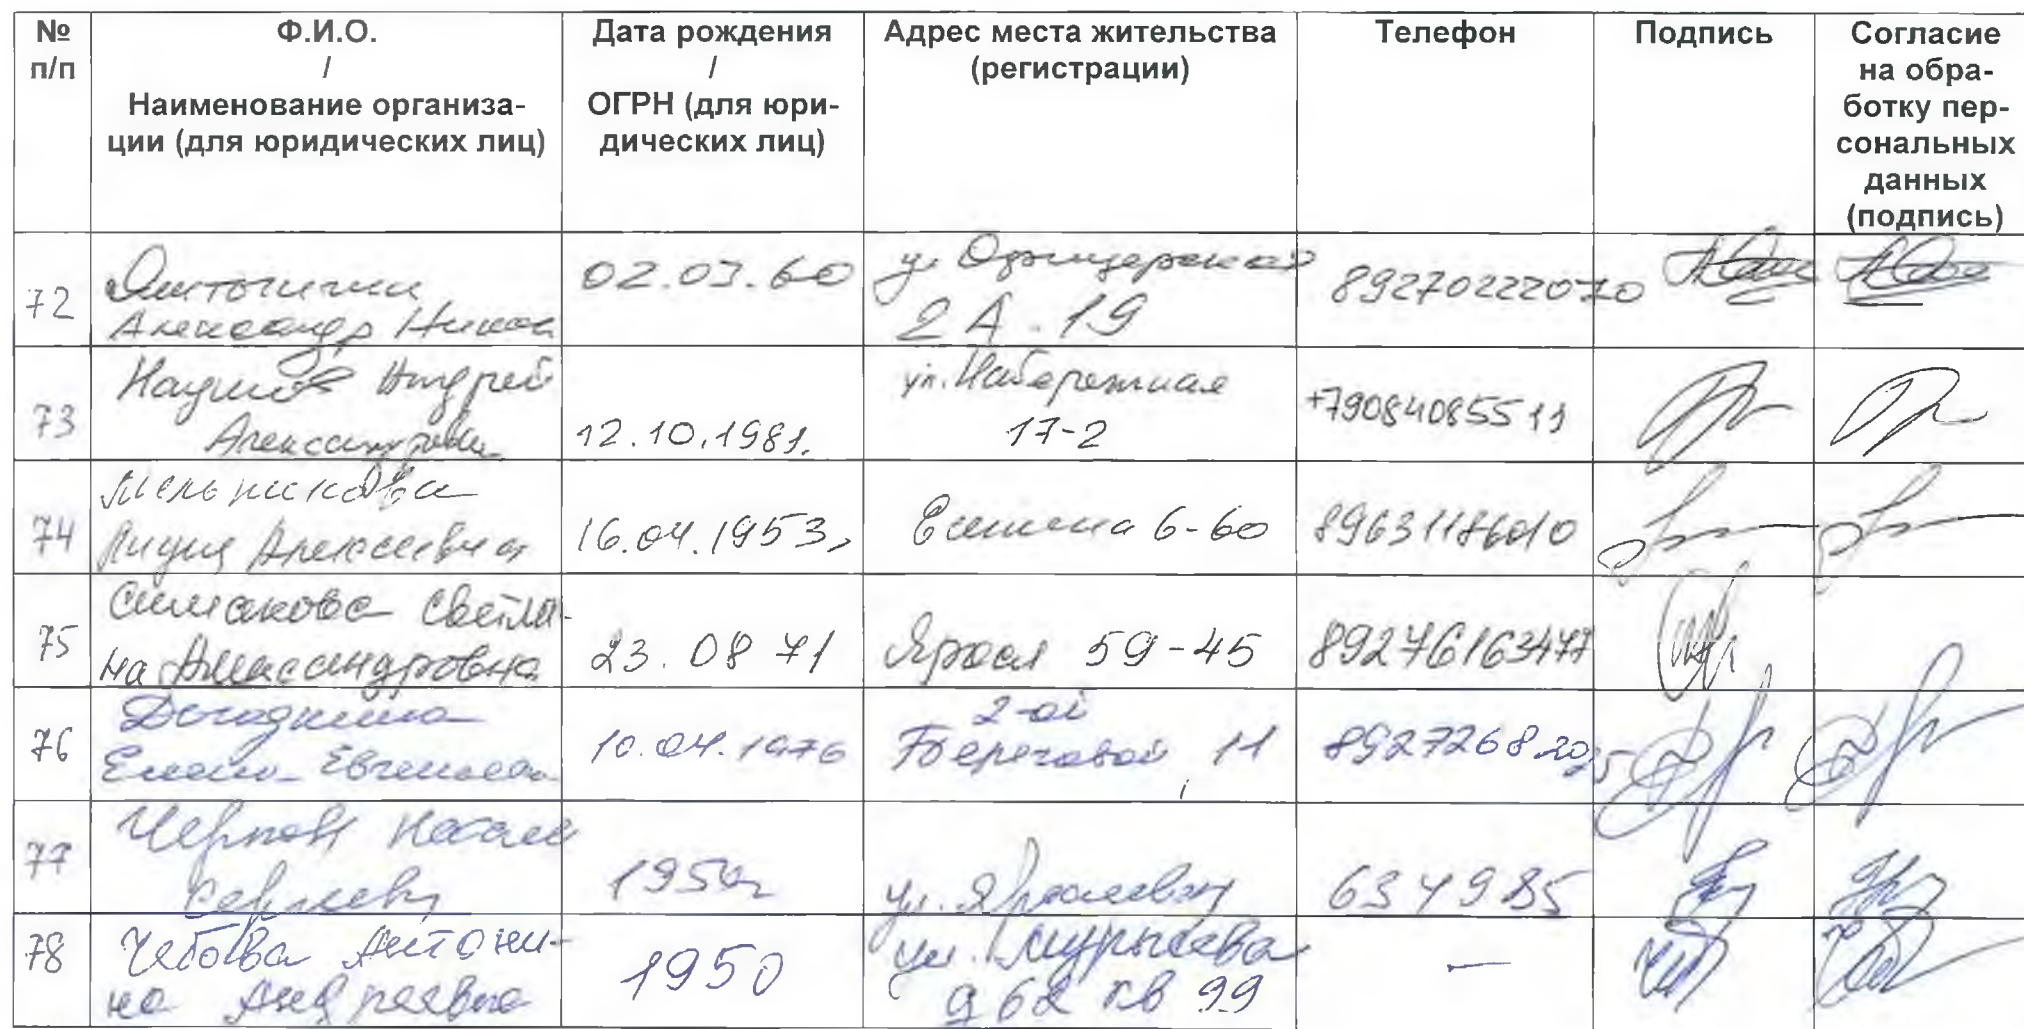 № п/п
Ф.И.О.
/
Наименование организа-
ции (для юридических лиц)
Дата рождения
/
ОГРН (для юри-
дических лиц)
Адрес места жительства
(регистрации)
Телефон
Подпись
Согласие
на обра-
ботку пер-
сональных
данных
(подпись)
72
Александр
02.03.60
у. Офицерская
2А-19
89270222070
73
Наумов Андрей
Александрович
12.10.1981.
ул. Набережная
17-2
+79084085511
74
Мельникова
Лидия Алексеевна
16.04.1953,
Есенина 6-60
89631186010
75
Симакова Светла-
на Александровна
23.08 71
Яросл 59-45
89276163477
76
Догадкина
Елена Евгеньевн
10.04.1976
2-ой
Береговой, 11
77
Сергеевич
1950г
ул.
634985
78
Антони-
на Андреевна
1950
ул. Мурысева
д 62 кв 99
—